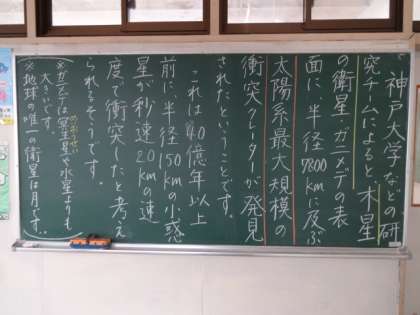 神戸大学などの研
究チームによると木星
の衛星「ガニメデの表
面に、半径7800kmに及ぶ
太陽系最大規模の
衝突クレーターが発見
されたということです。
これは40億年以上
前に、半径150kmの小惑
星が秒速20kmの速
度で衝突したと考え
られるそうです。
※ガニメデは冥王星や水星よりも
めいおうせい
大きいです。
※地球の唯一の衛星は月です。